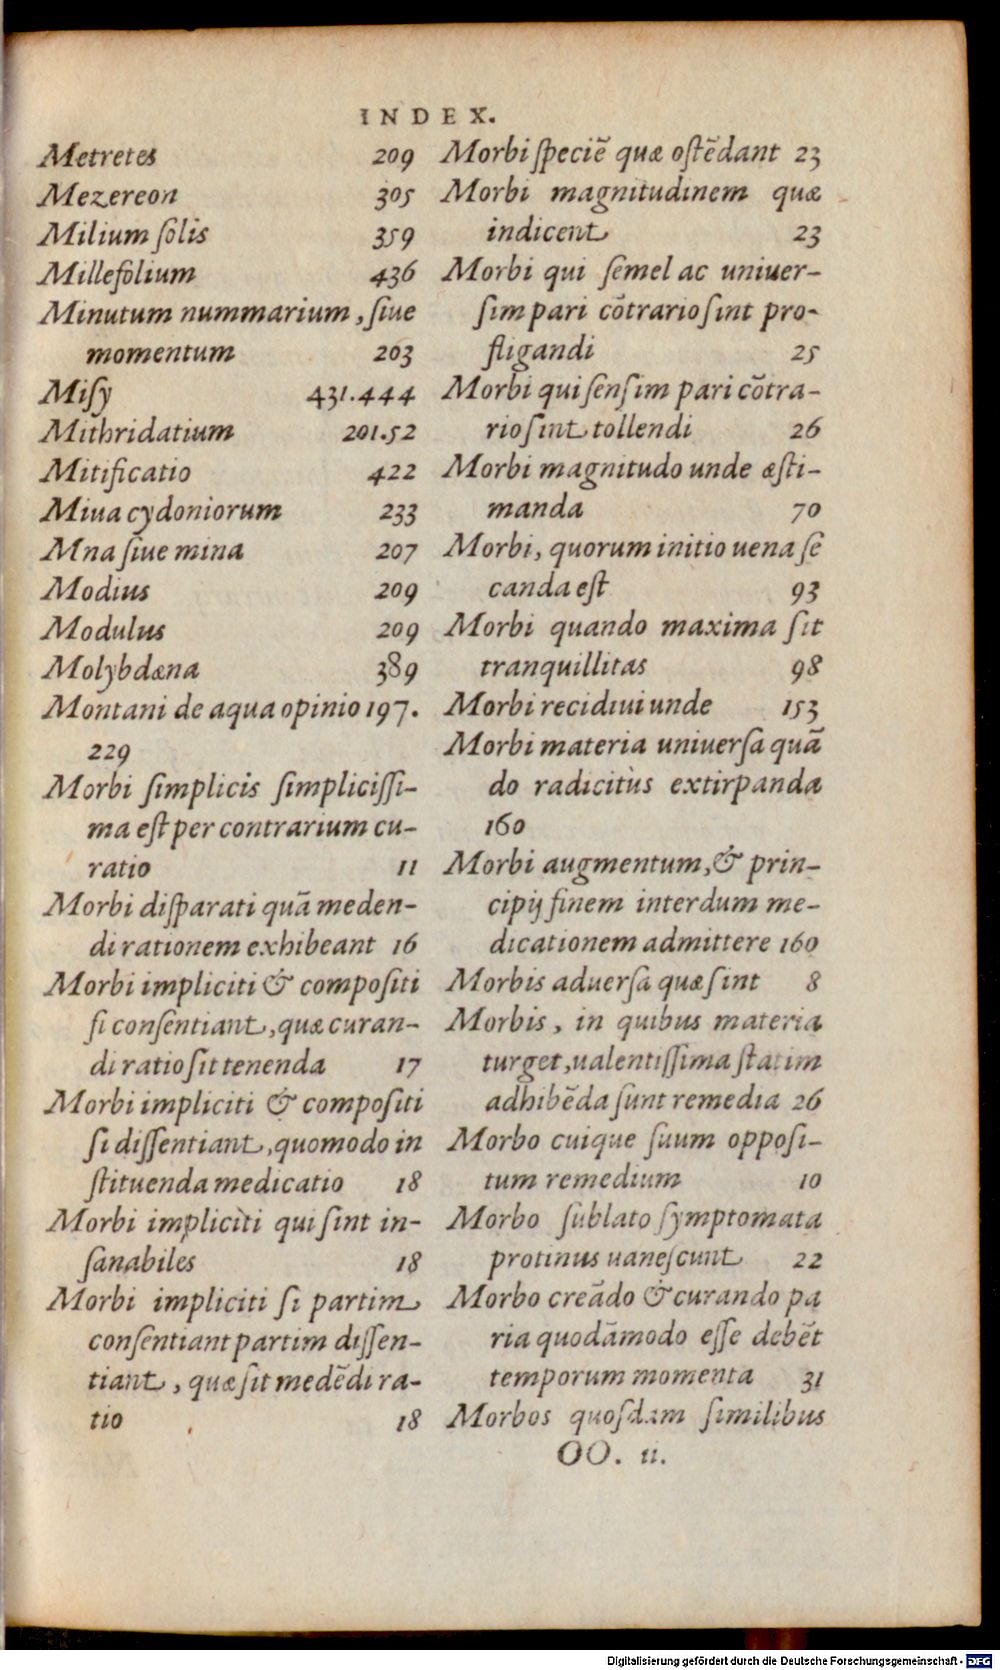 INDEX.
Metretes 209
Mezereon 305
Milium ſolis 359
Millefolium 436
Minutum nummarium, ſiue
momentum 203
Miſy 431.444
Mithridatium 201.52
Mitificatio 422
Miua cydoniorum 233
Mna ſiue mina 207
Modius 209
Modulus 209
Molybdæna 389
Montani de aqua opinio 197.
229
Morbi ſimplicis ſimpliciſſi-
ma eſt per contrarium cu-
ratio 11
Morbi diſparati quā meden-
di rationem exhibeant 16
Morbi impliciti & compoſiti
ſi conſentiant, quæ curan-
di ratio ſit tenenda 17
Morbi impliciti & compoſiti
ſi diſſentiant, quomodo in
ſtituenda medicatio 18
Morbi impliciti qui ſint in-
ſanabiles 18
Morbi impliciti ſi partim
conſentiant partim diſſen-
tiant, quæ ſit medēdi ra-
tio 18
Morbi ſpeciē quæ oſtēdant 23
Morbi magnitudinem quæ
indicent 23
Morbi qui ſemel ac uniuer-
ſim pari cōtrario ſint pro-
fligandi 25
Morbi qui ſenſim pari cōtra-
rio ſint tollendi 26
Morbi magnitudo unde æſti-
manda 70
Morbi, quorum initio uena ſe
canda eſt 93
Morbi quando maxima ſit
tranquillitas 98
Morbi recidiui unde 153
Morbi materia uniuerſa quā
do radicitùs extirpanda
160
Morbi augmentum, & prin-
cipij finem interdum me-
dicationem admittere 160
Morbis aduerſa quæ ſint 8
Morbis, in quibus materia
turget, ualentiſſima ſtatim
adhibēda ſunt remedia 26
Morbo cuique ſuum oppoſi-
tum remedium 10
Morbo ſublato ſymptomata
protinus uaneſcunt 22
Morbo creādo & curando pa
ria quodāmodo eſſe debēt
temporum momenta 31
Morbos quoſdam ſimilibus
OO. ii.
Digitalisierung gefördert durch die Deutsche Forschungsgemeinschaft - DFG